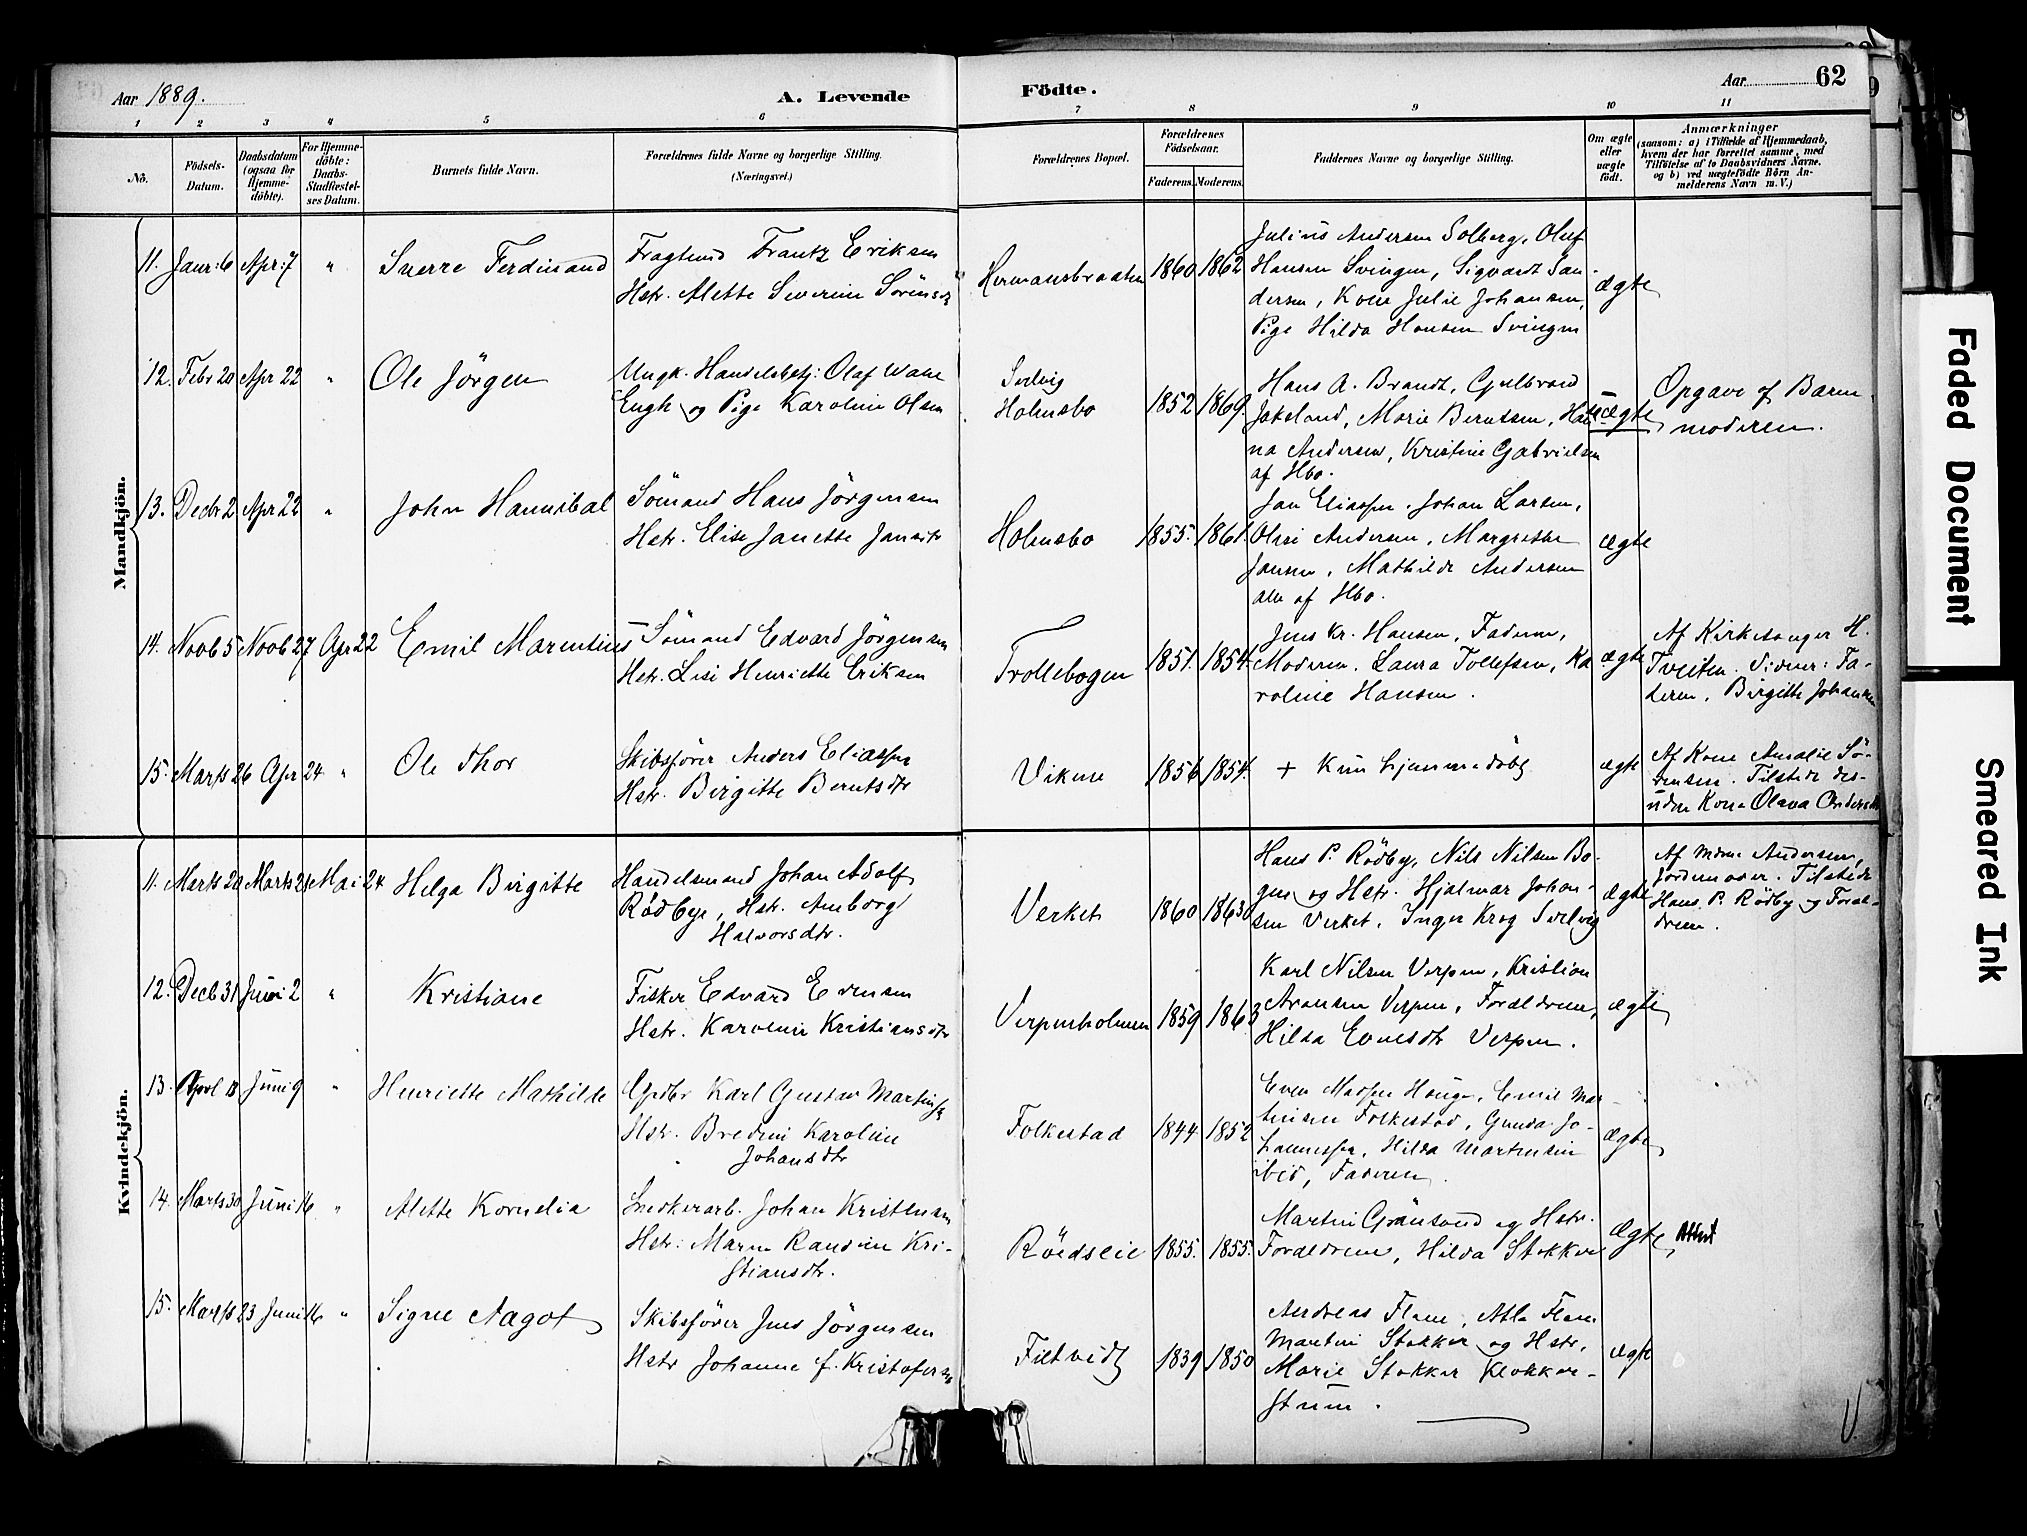 Aar 1889. A. Levende Födte. Aar 62
1 2 3 4 5 6 7 8 9 10 11
No.
Födsels-Datum.
Daabsdatum (ogsaa for Hjemme-döbte).
For Hjemme-döbte: Daabs-Stadfæstel-ses Datum.
Barnets fulde Navn.
Forældrenes fulde Navne og borgerlige Stilling. (Næringsvei.)
Forældrenes Bopæl.
Forældrenes Födselsaar.
Faderens. Moderens.
Faddernes Navne og borgerlige Stilling.
Om ægte eller uægte födt.
Anmærkninger
(saasom: a) i Tilfælde af Hjemmedaab,
hvem der har forrettet samme, med
Tilföielse af to Daabsvidners Navne.
og b) ved uægtefödte Börn An-
melderens Navn m. V.)
Mandkjön.
11. Janur: 6 Apr: 7 " Sverre Ferdinand
Fragtmd Frantz Eriksen
Hstr. Alette Severine Sörensd
Hermansbraaten 1860 1862
Julius Andersen Solberg, Oluf
Hansen Svingen, Sigvart San
dersen, Kone Julie Johansen,
Pige Hilda Hansen Svingen
ægte
12. Febr 20 Apr 22 " Ole Jörgen
Ungk. Handelsbetj: Olaf
Engh og Pige Karoline Olsen
Svelvig
Holmsbo 1852 1869.
Hans A. Brandt, Gulbrand
Jokeland, Marie Berntsen, Han
na Andersen, Kristine Gabrielsen
af Hbo.
uægte
Opgave af Barne
moderen.
13. Decbr 2 Apr 22 " John Hannibal
Sömand Hans Jörgensen
Hstr. Elise Janette Jansdtr
Holmsbo 1855. 1861.
Jan Eliassen, Johan Larsen,
Oline Andersen, Margrethe
Jansen, Mathilde Andersen
alle af Hbo.
ægte
14. Novb 5 Novb 27 Apr 22 Emil Marentius
Sömand Edvard Jörgensen
Hstr. Lise Henriette Eriksen
Trollebogen 1851. 1854.
Jens Kr. Hansen, Faderen,
Moderen, Laura Tollefsen, Ka
roline Hansen.
ægte
Af Kirkesanger H.
Tveiten. Vidner: Fa-
deren, Birgitte Johansen
15. Marts 26 Apr 24 " Ole Thor
Skibsfører Anders Eliassen
Hstr. Birgitte Berntsdtr
Vikene 1856 1854.
+ Kun hjemmedöbt
ægte
Af Kone Amalie Sö-
rensen. Tilstede des-
uden Kone Olava Andersen
Kvindekjön.
11. Marts 20 Marts 21 Mai 24 Helga Birgitte
Handelsmand Johan Adolf
Rödbye, Hstr. Amborg
Halvorsdtr.
Verket 1860 1863
Hans P. Rödby, Nils Nilsen Bo-
gen og Hstr. Hjalmar Johan-
sen Verket, Inger Krog Svelvig
ægte
Af Mdme Andersen,
Jordemoder. Tilstede
Hans P. Rödby og Foræl-
drene.
12. Decb 31 Juni 2 " Kristiane
Fisker Edvard Evensen
Hstr. Karoline Kristiansdtr
Verpenholmen 1859 1863
Karl Nilsen Verpen, Kristian
Aronsen Verpen, Forældrene,
Hilda Evensdtr Verpen.
ægte
13. April 18 Juni 9 " Henriette Mathilde
Gpdbr Karl Gustav Martinsen
Hstr. Bredine Karoline
Johansdtr
Folkestad 1844 1852
Even Madsen Hauge, Emil Mar-
tinsen Folkestad, Gunda Jo-
hannessen, Hilda Martinsen
ibid, Faderen.
ægte
14. Marts 30 Juni 16 " Alette Kornelia
Snedkerarb. Johan Kristensen
Hstr: Maren Randine Kri-
stiansdtr.
Röedseie 1855. 1855.
Martin Grönsand og Hstr.
Forældrene, Hilda Stokker
Ægte Attest
15. Marts 23 Juni 16 " Signe Aagot
Skibsfører Jens Jörgensen
Hstr Johanne f. Kristofersen
Filtvedt 1839 1850
Andreas Flane, Atle Flane
Martin Stokker og Hstr,
Marie Stokker Klokker-
stuen.
ægte
Faded Document
Smeared Ink